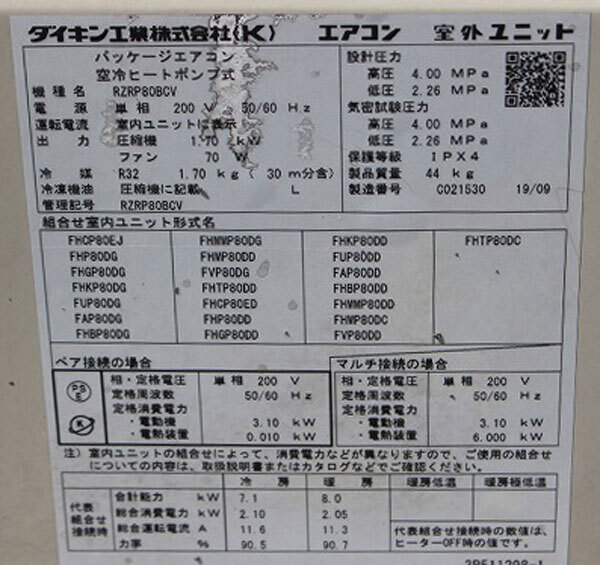 ダイキン工業株式会社(K) エアコン 室外ユニット
パッケージエアコン
空冷ヒートポンプ式
機種名 RZRP80BCV
電源 単相 200 V 50/60 Hz
運転電流 室内ユニットに表示
出力 圧縮機 1.70 kW
ファン 70 W
冷媒 R32 1.70 kg ( 30 m分含)
冷凍機油 圧縮機に記載 L
管理記号 RZRP80BCV
設計圧力
高圧 4.00 MPa
低圧 2.26 MPa
気密試験圧力
高圧 4.00 MPa
低圧 2.26 MPa
保護等級 IPX4
製品質量 44 kg
製造番号 C021530 19/09
組合せ室内ユニット形式名
FHCP80EJ FHMMP80DG FHKP80DD FHTP80DC
FHP80DG FHWP80DD FUP80DD
FHGP80DG FVP80DG FAP80DD
FHKP80DG FHTP80DD FHBP80DD
FUP80DG FHCP80ED FHMMP80DD
FAP80DG FHP80DD FHWP80DC
FHBP80DG FHGP80DD FVP80DD
ペア接続の場合
相・定格電圧 単相 200 V
定格周波数 50/60 Hz
定格消費電力
・電動機 3.10 kW
・電熱装置 0.010 kW
マルチ接続の場合
相・定格電圧 単相 200 V
定格周波数 50/60 Hz
定格消費電力
・電動機 3.10 kW
・電熱装置 6.000 kW
PSE
注) 室内ユニットの組合せによって、消費電力などが異なりますので、ご使用の組合せ
についての内容は、取扱説明書またはカタログなどでご確認ください。
冷房 暖房 暖房低温 暖房極低温
代表組合せ接続時
合計能力 kW 7.1 8.0
総合消費電力 kW 2.10 2.05
総合運転電流 A 11.6 11.3
力率 % 90.5 90.7
代表組合せ接続時の数値は、
ヒーターOFF時の値です。